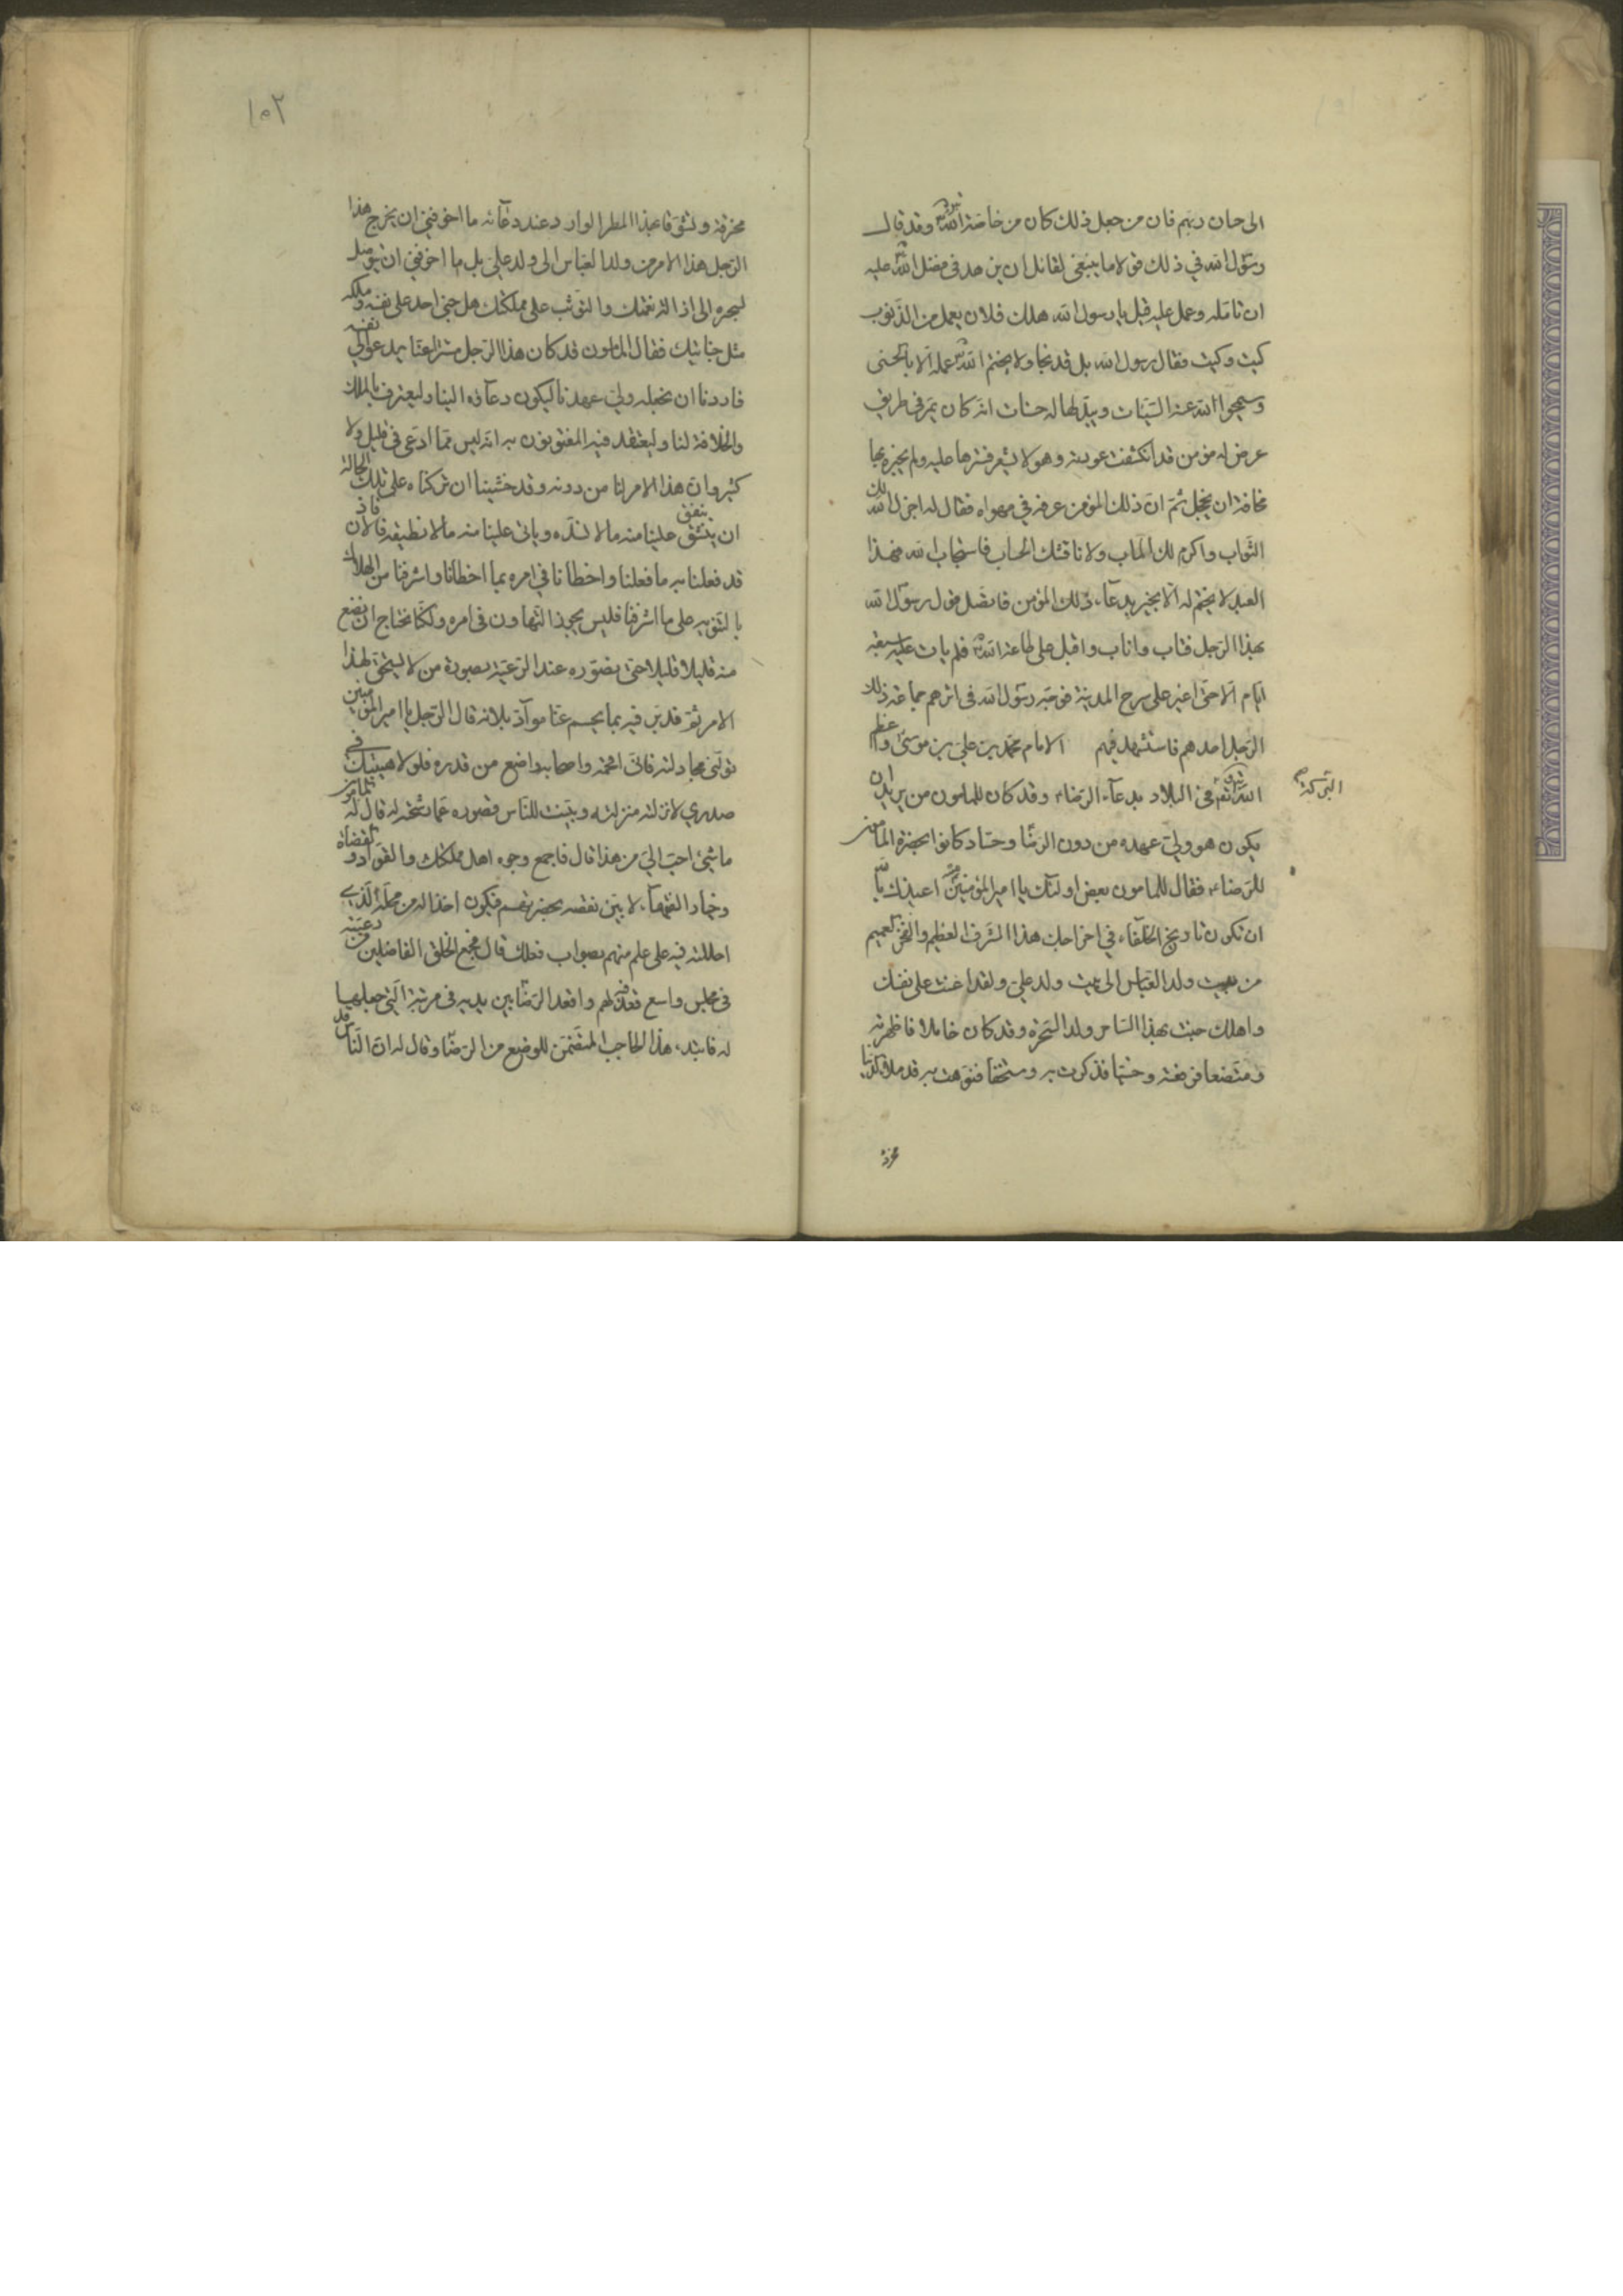 الى جنان ربهم فان من جعل ذلك كان من خاصة الله تبارك وتعالى وقد قال
رسول الله في ذلك قولا ما ينبغي لقائل ان يزهد في فضل الله عليه
ان تامله وعمل عليه قيل يا رسول الله هلك فلان يعمل من الذنوب
كيت وكيت فقال رسول الله بل قد نجا ولا يختم الله عمله الا بالحسنى
وسيمحوا الله عنه السيئات ويبدلها له حسنات انه كان يمر في طريق
عرض له مؤمن قد انكشفت عورته وهو لا يشعر فسترها عليه ولم يخبره بها
مخافة ان يخجل ثم ان ذلك المؤمن عرفه في مهواه فقال له اجزل الله لك
الثواب واكرم لك الماب ولا ناقشك الحساب فاستجاب الله فهذا
العبد لا يختم له الا بخير بدعاء ذلك المؤمن فاتصل قول رسول الله
بهذا الرجل فتاب واناب واقبل على طاعة الله فلم يات عليه سبعة
ايام الا حتى اغير على سرح المدينة فوجه رسول الله في اثرهم جماعة ذلك
الرجل احدهم فاستشهد فيهم الامام محمد بن علي بن موسى واعظم
الله تعالى في البلاد بدعاء الرضاء وقد كان للمامون من يريد ان
البركة صح
يكون هو ولي عهده من دون الرضا وحساد كانوا بحضرة المامون
للرضاء فقال للمامون بعض اولئك يا امير المؤمنين اعيذك بالله
ان تكون تاريخ الخلفاء في اخراجك هذا الشرف العظيم والفخر العميم
من بيت ولد العباس الى بيت ولد علي ولقد اعنت على نفسك
واهلك جئت بهذا الساحر ولد السحرة وقد كان خاملا فاظهرته
ومتضعا فرفعته ومنسيا فذكرت به ومستخفا فنوهت به قد ملا الدنيا
مخرقة
١٥٢
مخرقة وتشوقا بهذا المطر الوارد عند دعائه ما اخوفني ان يخرج هذا
الرجل هذا الامر من ولد العباس الى ولد علي بل ما اخوفني ان يتوصل
لسحره الى ازالة نعمتك والتوثب على مملكتك هل جنى احد على نفسه وملكه
مثل جنايتك فقال المامون قد كان هذا الرجل مستترا عنا يدعو الى نفسه
فاردنا ان نجعله ولي عهدنا ليكون دعاؤه الينا وليعترف بالملك
والخلافة لنا وليعتقد فيه المفتونون به انه ليس مما ادعى في قليل ولا
كثير وان هذا الامر لنا من دونه وقد خشينا ان تركناه على تلك الحالة
ان ينفتق علينا منه ما لا نسده وياتي علينا منه ما لا نطيقه فالان فاذ
قد فعلنا به ما فعلنا واخطانا في امره بما اخطانا واشرفنا من الهلاك
بالتنويه على ما اشرفنا فليس يجوز التهاون في امره ولكنا نحتاج ان نضع
منه قليلا قليلا حتى نصوره عند الرعية بصورة من لا يستحق لهذا
الامر ثم ندبر فيه بما يحسم عنا مواد بلائه قال الرجل يا امير المؤمنين
تولني مجادلته فاني افحمه واصحابه واضع من قدره فلولا هيبتك في
صدري لانزلته منزلته وبينت للناس قصوره عما رشحته له قال المامون
ما شيء احب الي من هذا قال فاجمع وجوه اهل مملكتك والقواد والقضاة
وخيار الفقهاء لابين نقصه بحضرتهم فيكون اخذا له من محله الذي
احللته فيه على علم منهم بصواب فعلك قال فجمع الخلق الفاضلين من رعيته
في مجلس واسع قعد فيه لهم واقعد الرضا بين يديه في مرتبته التي جعلها
له فابتدء هذا الحاجب المتضمن للوضع من الرضا وقال له ان الناس قد